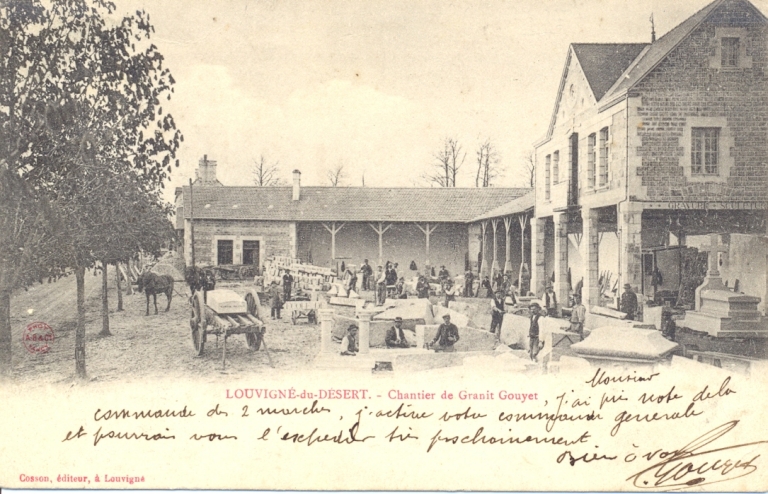 GRANITS
LOUVIGNÉ-du-DÉSERT. - Chantier de Granit Gouyet
Monsieur
, j'ai pris note de la
commande des 2 marches, j'active votre commande generale
et pourrais vous l'expedier très prochainement
Bien à vous
Gouyet
Cosson, éditeur, à Louvigné